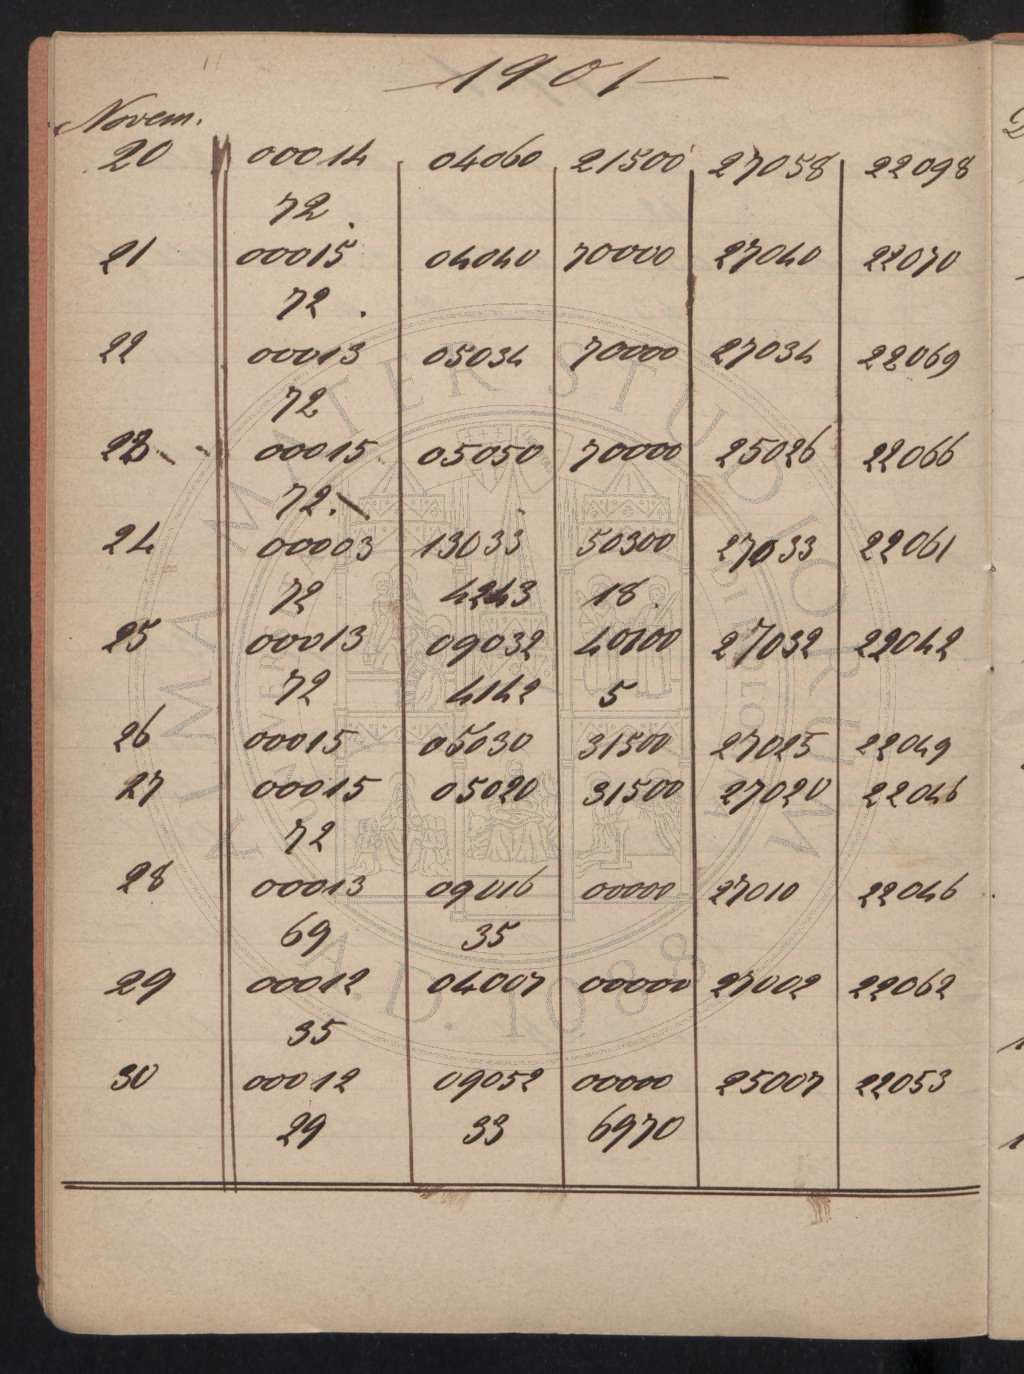 1901
Novem.
20 00014 04060 21500 27058 22098
72.
21 00015 04040 70000 27040 22070
72.
22 00013 05034 70000 27034 22069
72
23 00015 05050 70000 25026 22066
72.
24 00003 13033 50300 27033 22061
72 4243 18.
25 00013 09032 40700 27032 22042
72 4142 5
26 00015 05030 31500 27025 22049
27 00015 05020 31500 27020 22046
72
28 00013 09016 00000 27010 22046
69 35
29 00012 04007 00000 27002 22062
35
30 00012 09052 00000 25007 22053
29 33 6970
ALMA MATER STUDIORUM
A.D. 1088